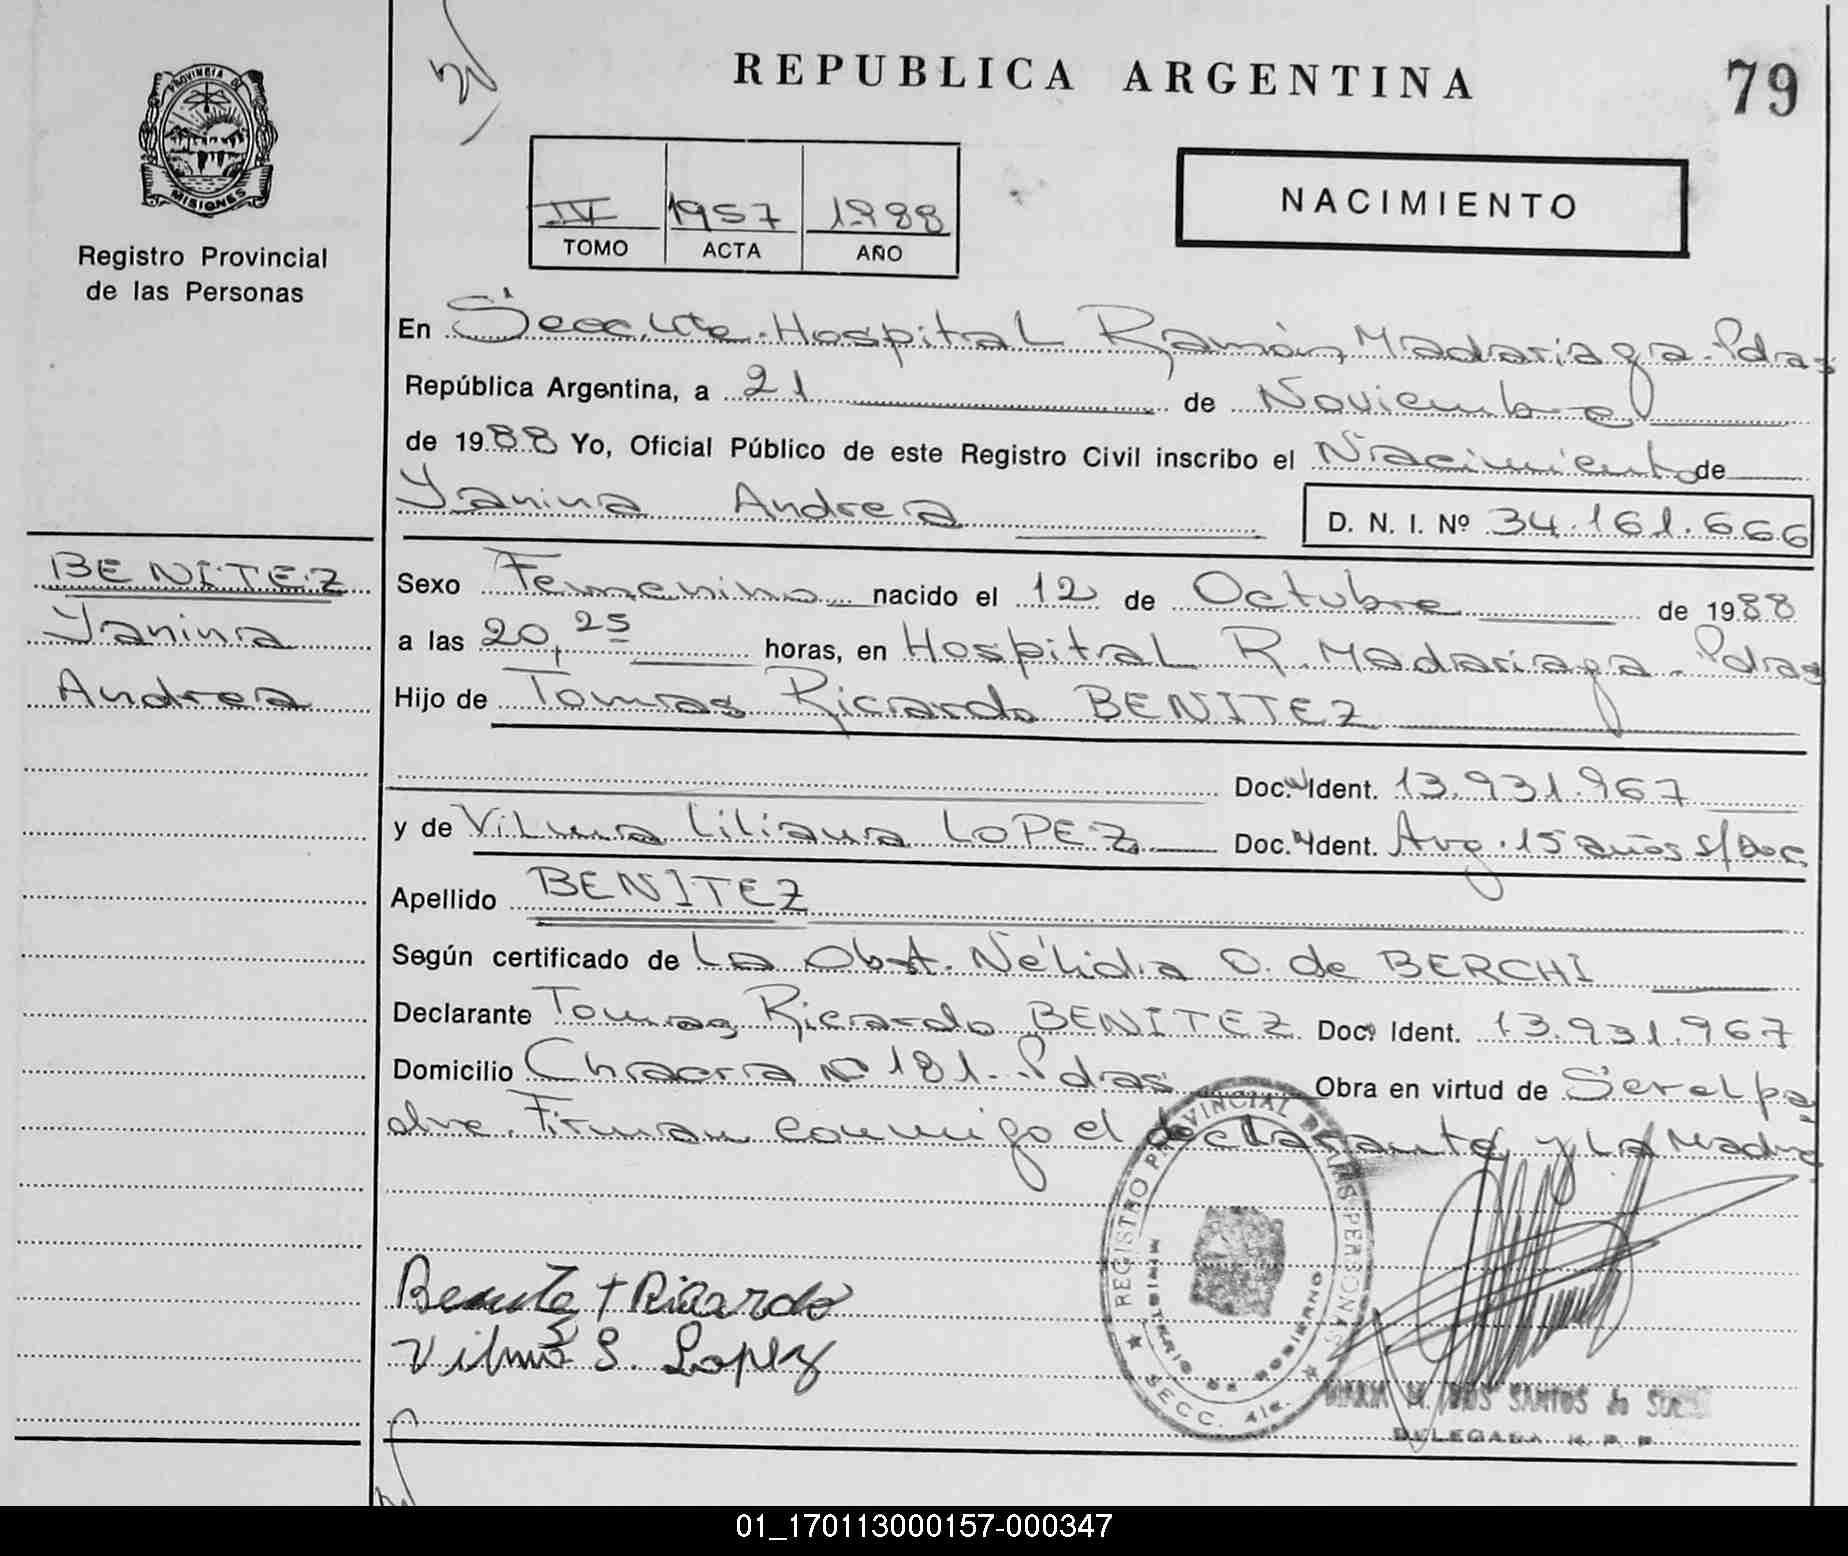 REPUBLICA ARGENTINA
79
PROVINCIA DE
MISIONES
Registro Provincial
de las Personas
IV 1957 1988
TOMO ACTA AÑO
NACIMIENTO
En Secc. 4ta. Hospital Ramón Madariaga - Pdas
República Argentina, a 21 de Noviembre
de 1988 Yo, Oficial Público de este Registro Civil inscribo el Nacimiento de
Yanina Andrea
D. N. I. Nº 34.161.666
BENITEZ
Yanina
Andrea
Sexo Femenino nacido el 12 de Octubre de 1988
a las 20,25 horas, en Hospital R. Madariaga - Pdas
Hijo de Tomas Ricardo BENITEZ
Doc. Ident. 13.931.967
y de Vilma Liliana LOPEZ Doc. Ident. Arg. 15 años s/Doc.
Apellido BENITEZ
Según certificado de La Obst. Nélida O. de BERCHI
Declarante Tomas Ricardo BENITEZ Docº Ident. 13.931.967
Domicilio Chacra Nº 181 - Pdas Obra en virtud de Ser el pa
dre. Firman conmigo el declarante y La Madre
REGISTRO PROVINCIAL DE LAS PERSONAS
MINISTERIO DE GOBIERNO
SECC. 4ta.
Benitez T Ricardo
Vilma L. Lopez
MARIA M. DOS SANTOS de
DELEGADA R. P. P.
01_170113000157-000347